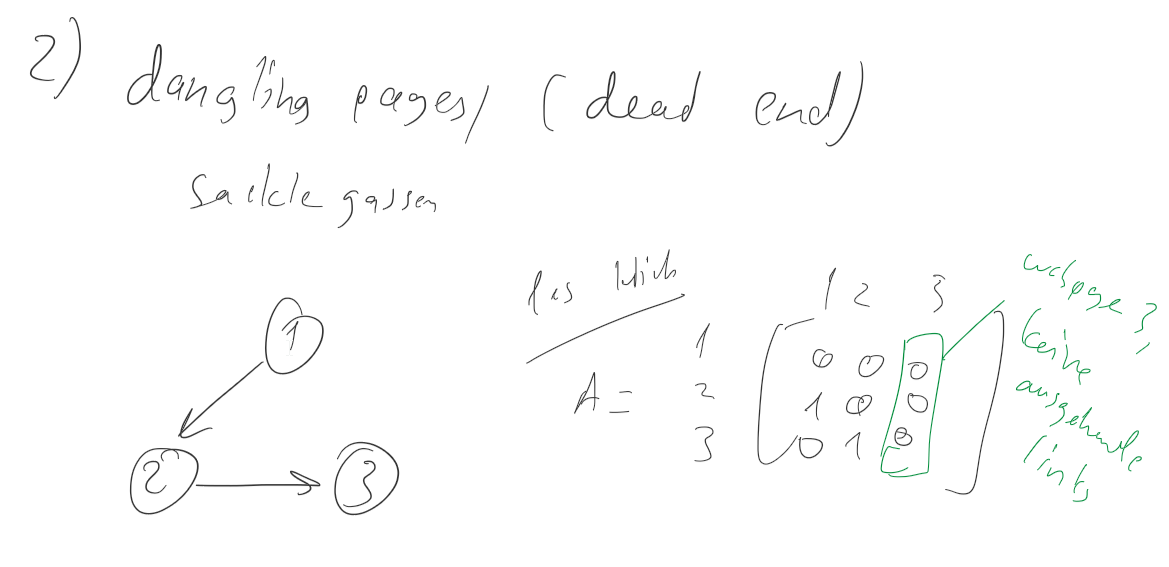 2) dangling pages/ (dead end)
Sackgassen
1
2
3
1 2 3
A =
1
2
3
0 0 0
1 0 0
0 1 0
webpage 3,
keine
ausgehende
links